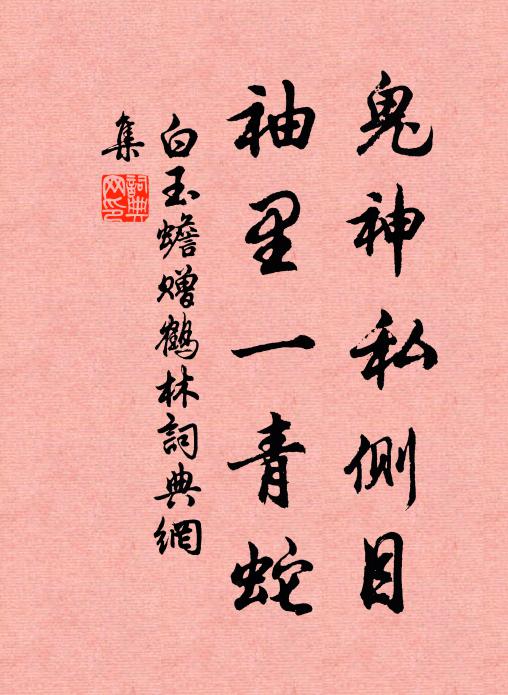 鬼神私侧目
袖里一青蛇
白玉蟾赠鹤林詞典網
集
詞典网印